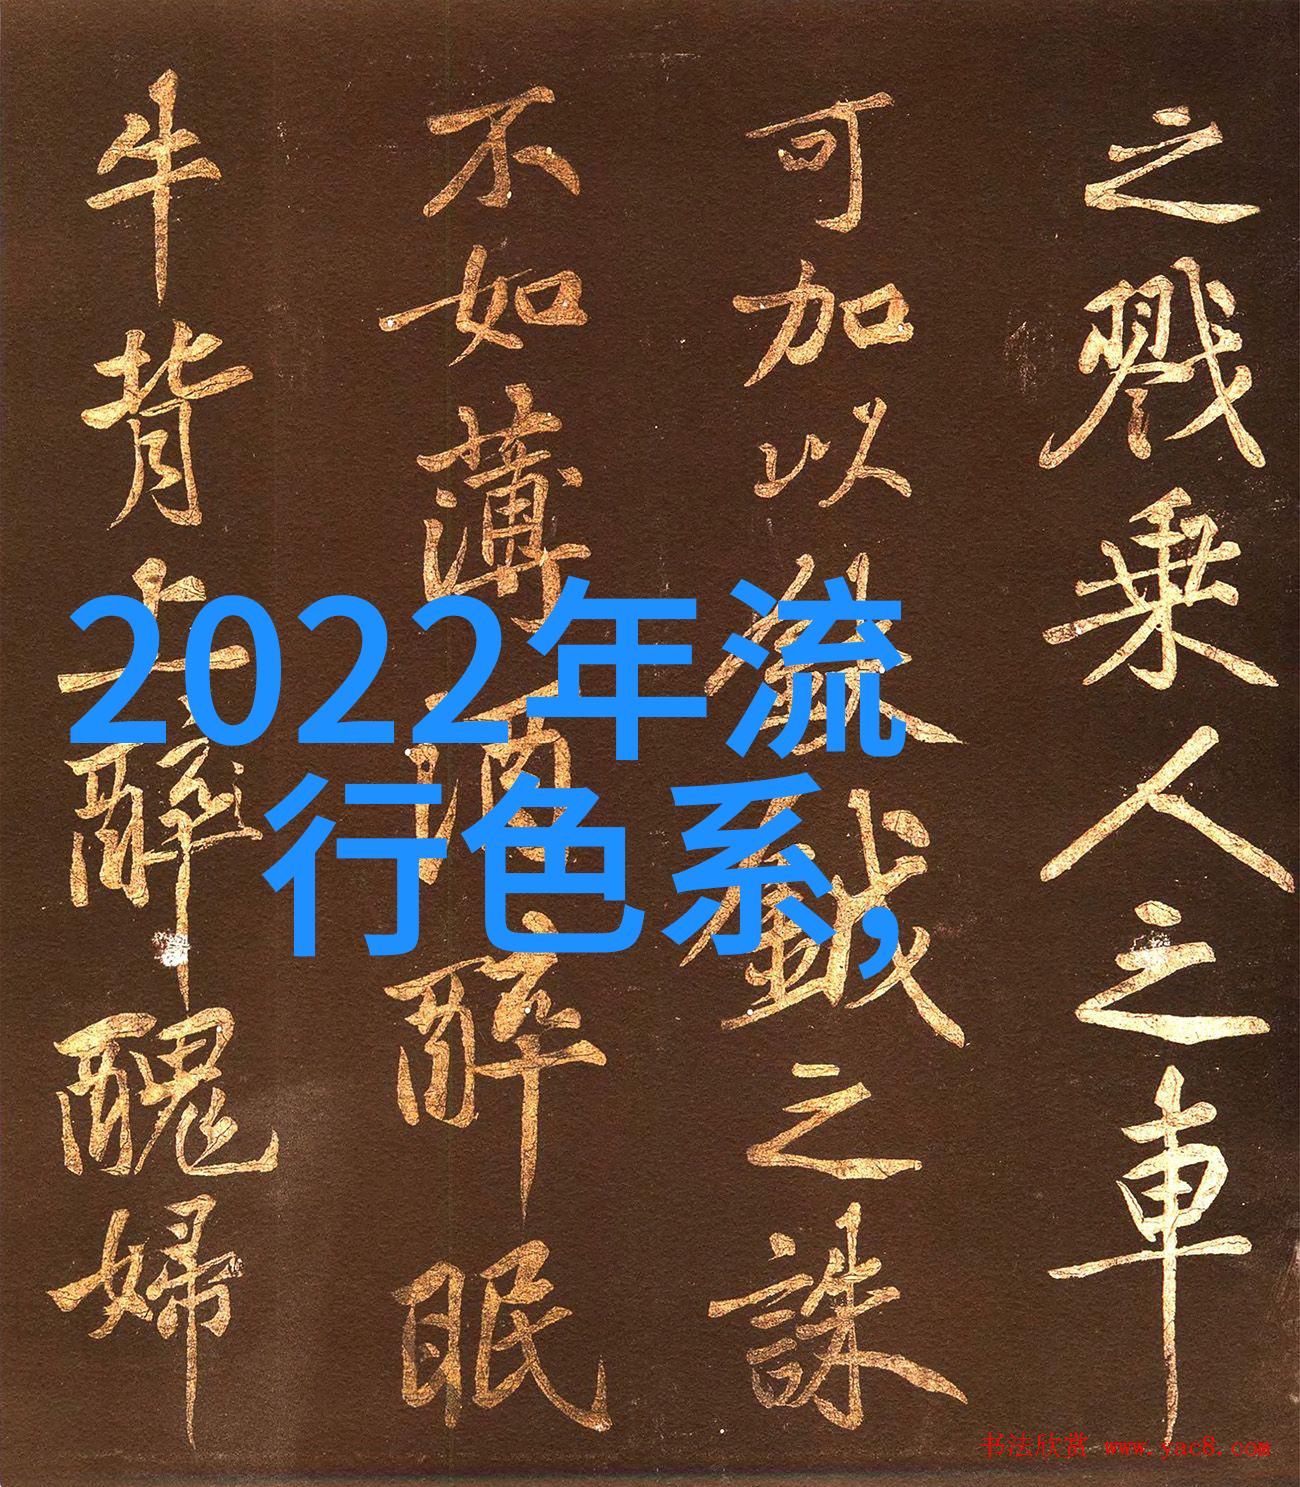 之戮乘人之車
可加以鉞之誅
不如薄酒醉眠
牛背上醉醜婦
2022年流
行色系,
书法欣赏 www.yac8.com